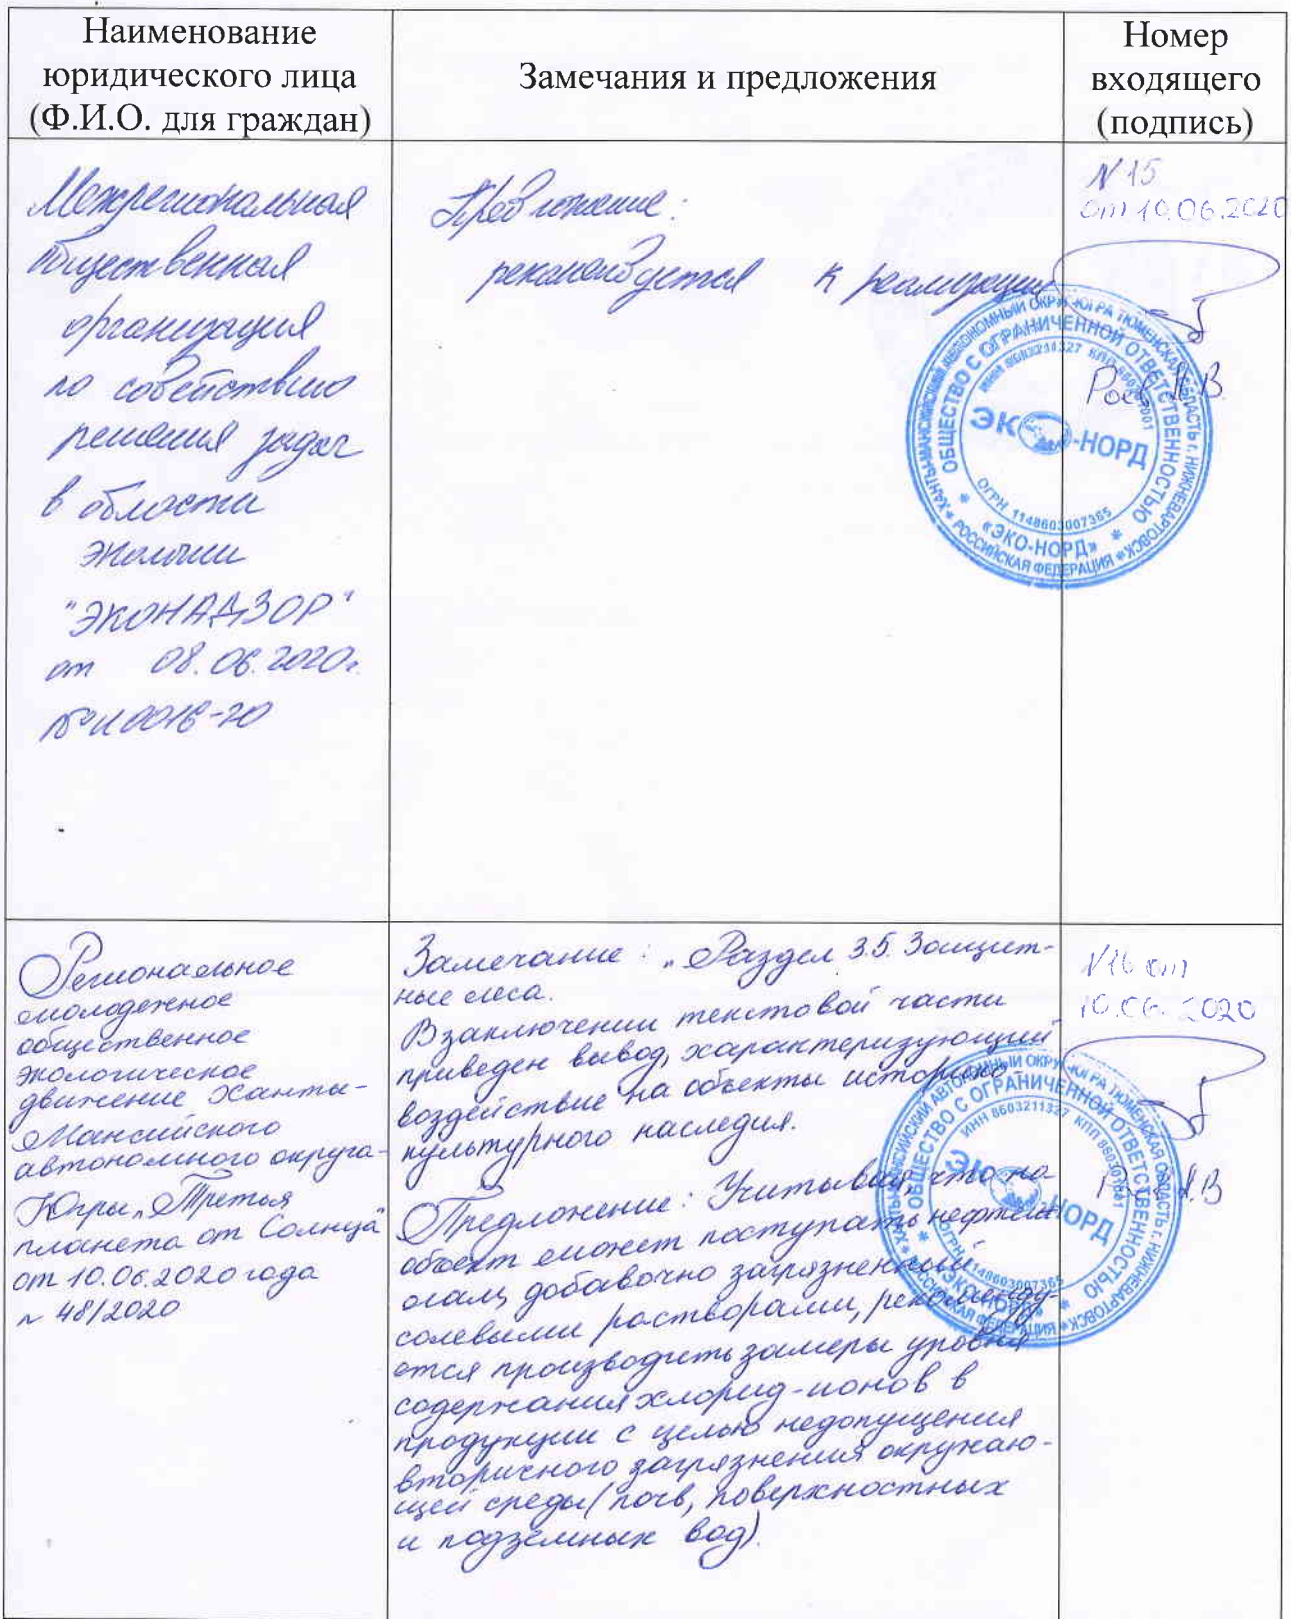 Наименование
юридического лица
(Ф.И.О. для граждан)
Замечания и предложения
Номер
входящего
(подпись)
Межрегиональная
общественная
организация
по содействию
решения задач
в области
экологии
"ЭКОНАДЗОР"
от 08.06.2020г.
№И0016-20
Предложение:
рекомендуется к реализации
N 15
от 10.06.2020
Роев Н.В.
ХАНТЫ-МАНСИЙСКИЙ АВТОНОМНЫЙ ОКРУГ-ЮГРА ТЮМЕНСКАЯ ОБЛАСТЬ г. НИЖНЕВАРТОВСК * РОССИЙСКАЯ ФЕДЕРАЦИЯ *
ОБЩЕСТВО С ОГРАНИЧЕННОЙ ОТВЕТСТВЕННОСТЬЮ
ИНН 8603211327 КПП 860301001
ЭКО-НОРД
ОГРН 1148603007365
* «ЭКО-НОРД» *
Региональное
молодежное
общественное
экологическое
движение Ханты-
Мансийского
автономного округа-
Югры „Третья
планета от Солнца"
от 10.06.2020 года
N 48/2020
Замечание: „Раздел 3.5. Защит-
ные леса.
В заключении текстовой части
приведен вывод, характеризующий
воздействие на объекты историко-
культурного наследия.
Предложение: Учитывая, что на
объект может поступать нефте-
шлам, добавочно загрязненный
солевыми растворами, рекоменду-
ется производить замеры уровня
содержания хлорид-ионов в
продукции с целью недопущения
вторичного загрязнения окружаю-
щей среды (почв, поверхностных
и подземных вод).
N16 от
10.06.2020
Роев Н.В
ХАНТЫ-МАНСИЙСКИЙ АВТОНОМНЫЙ ОКРУГ-ЮГРА ТЮМЕНСКАЯ ОБЛАСТЬ г. НИЖНЕВАРТОВСК * РОССИЙСКАЯ ФЕДЕРАЦИЯ *
ОБЩЕСТВО С ОГРАНИЧЕННОЙ ОТВЕТСТВЕННОСТЬЮ
ИНН 8603211327 КПП 860301001
ЭКО-НОРД
ОГРН 1148603007365
* «ЭКО-НОРД» *